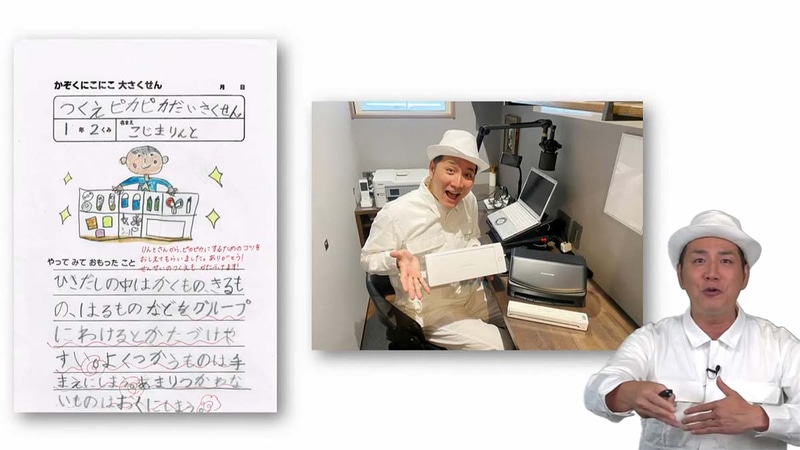 かぞくにこにこ 大さくせん
月 日
つくえピカピカだいさくせん
1年2くみ
名まえ
こじまりんと
りんとさんから、ピカピカにするためのコツを
おしえてもらいました。ありがとう!
せんせいのつくえも かたづけます!
やって みて おもった こと
ひきだしの中はかくもの、きるも
の、はるものなどをグループ
にわけるとかたづけや
すい。よくつかうものは手
まえにしまう。あまりつかわな
いものはおくにしまう。